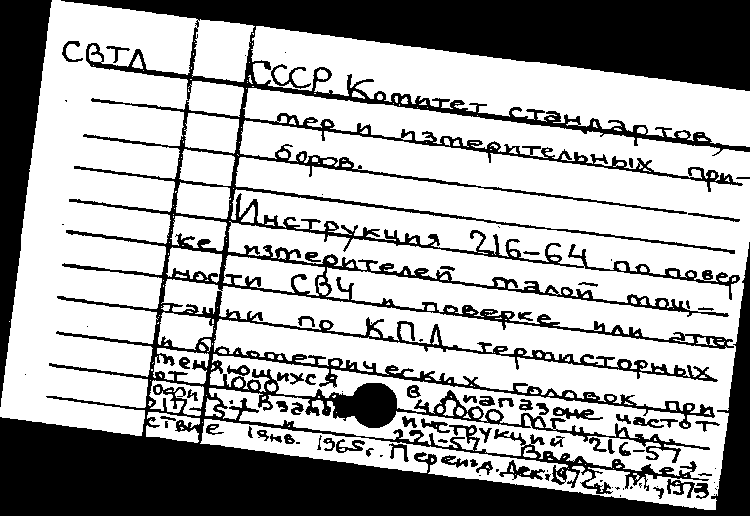 СВТЛ
СССР. Комитет стандартов,
мер и измерительных при-
боров.
Инструкция 216-64 по повер
ке измерителей малой мощ-
ности СВЧ и поверке или аттес
тации по К.П.Д. термисторных
и болометрических головок, при-
меняющихся в диапазоне частот
от 1000 до 40000 МГц. Изд.
Взамен инструкций 216-57,
217-57 и 221-57. Введ. в дей-
ствие 1 янв. 1965г. Переизд. дек. 1972г. М., 1973.